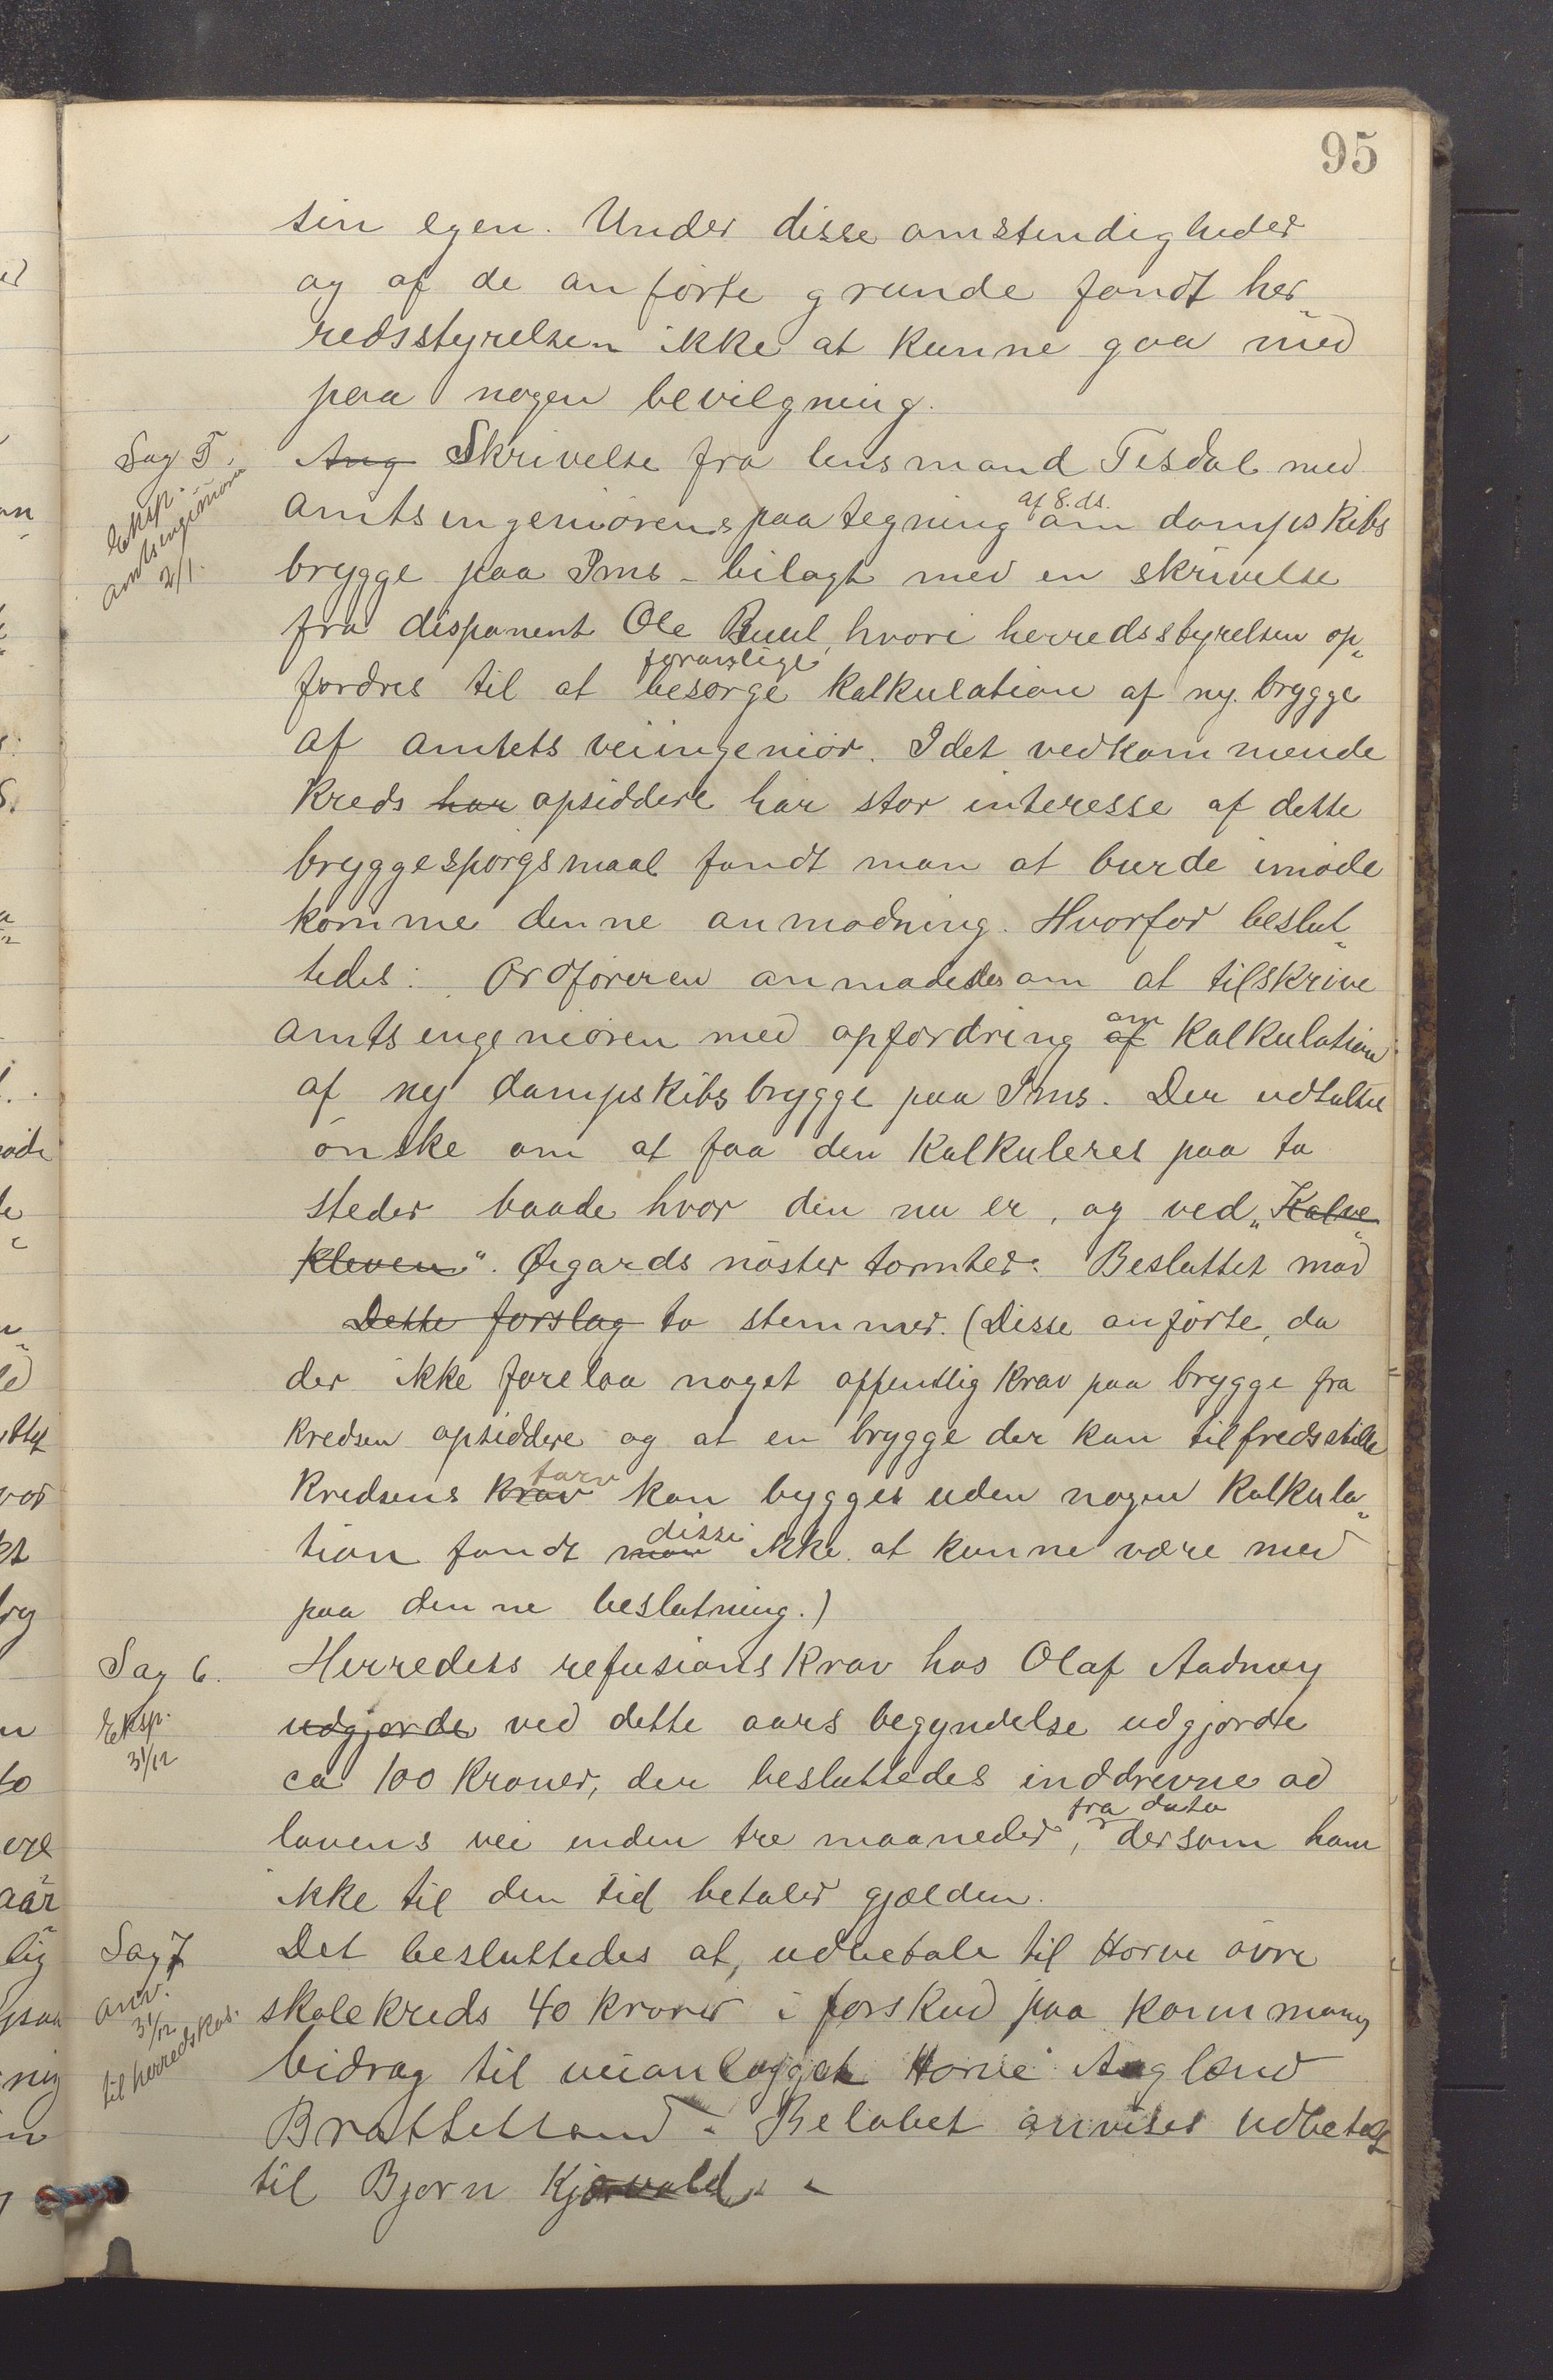 95
sin egen. Under disse omstendigheder
og af de anførte grunde fandt her-
redsstyrelsen ikke at kunne gaa med
paa nogen bevilgning.
Sag 5.
Eksp.
amtsingeniøren
2/1.
Ang Skrivelse fra lensmand Tesdal med
af 8. ds.
amtsingeniørens paategning om dampskibs
brygge paa Ims - bilagt med en skrivelse
fra disponent Ole Buul, hvori herredsstyrelsen op-
foranlige
fordres til at besørge Kalkulation af ny brygge
af amtets veiingeniør. Idet vedkommende
Kreds har opsiddere har stor interesse af dette
bryggespørgsmaal fandt man at burde imøde
komme denne anmodning. Hvorfor beslut-
tedes: Ordføreren anmodedes om at tilskrive
om
amtsingeniøren med opfordring af Kalkulation
af ny dampskibsbrygge paa Ims. Der udtaltes
ønske om at faa den Kalkuleres paa to
steder baade hvor den nu er, og ved „Kalve-
kleven“. Øigards nøster tomter. Besluttet mod
Dette forslag to stemmer. (Disse anførte, da
der ikke forelaa noget offentlig Krav paa brygge fra
Kredsen opsiddere og at en brygge der kan tilfredsstille
tarv
Kredsens Krav kan bygges uden nogen Kalkula-
disse
tion fandt man ikke at kunne være med
paa denne beslutning.)
Sag 6.
Eksp.
31/12
Herredets refusionskrav hos Olaf Aadnøy
udgjorde ved dette aars begyndelse udgjorde
ca 100 Kroner, der besluttedes inddrevne ad
fra dato
lovens vei inden tre maaneder, dersom han
ikke til den tid betaler gjælden.
Sag 7
anv.
31/12
til herredskas.
Det besluttedes at, udbetale til Horve øvre
skolekreds 40 kroner i forskud paa kommuns
bidrag til veianlægget Horve Aagland
Brattetland. Beløbet anvises udbetalt
til Bjørn Kjosvold.